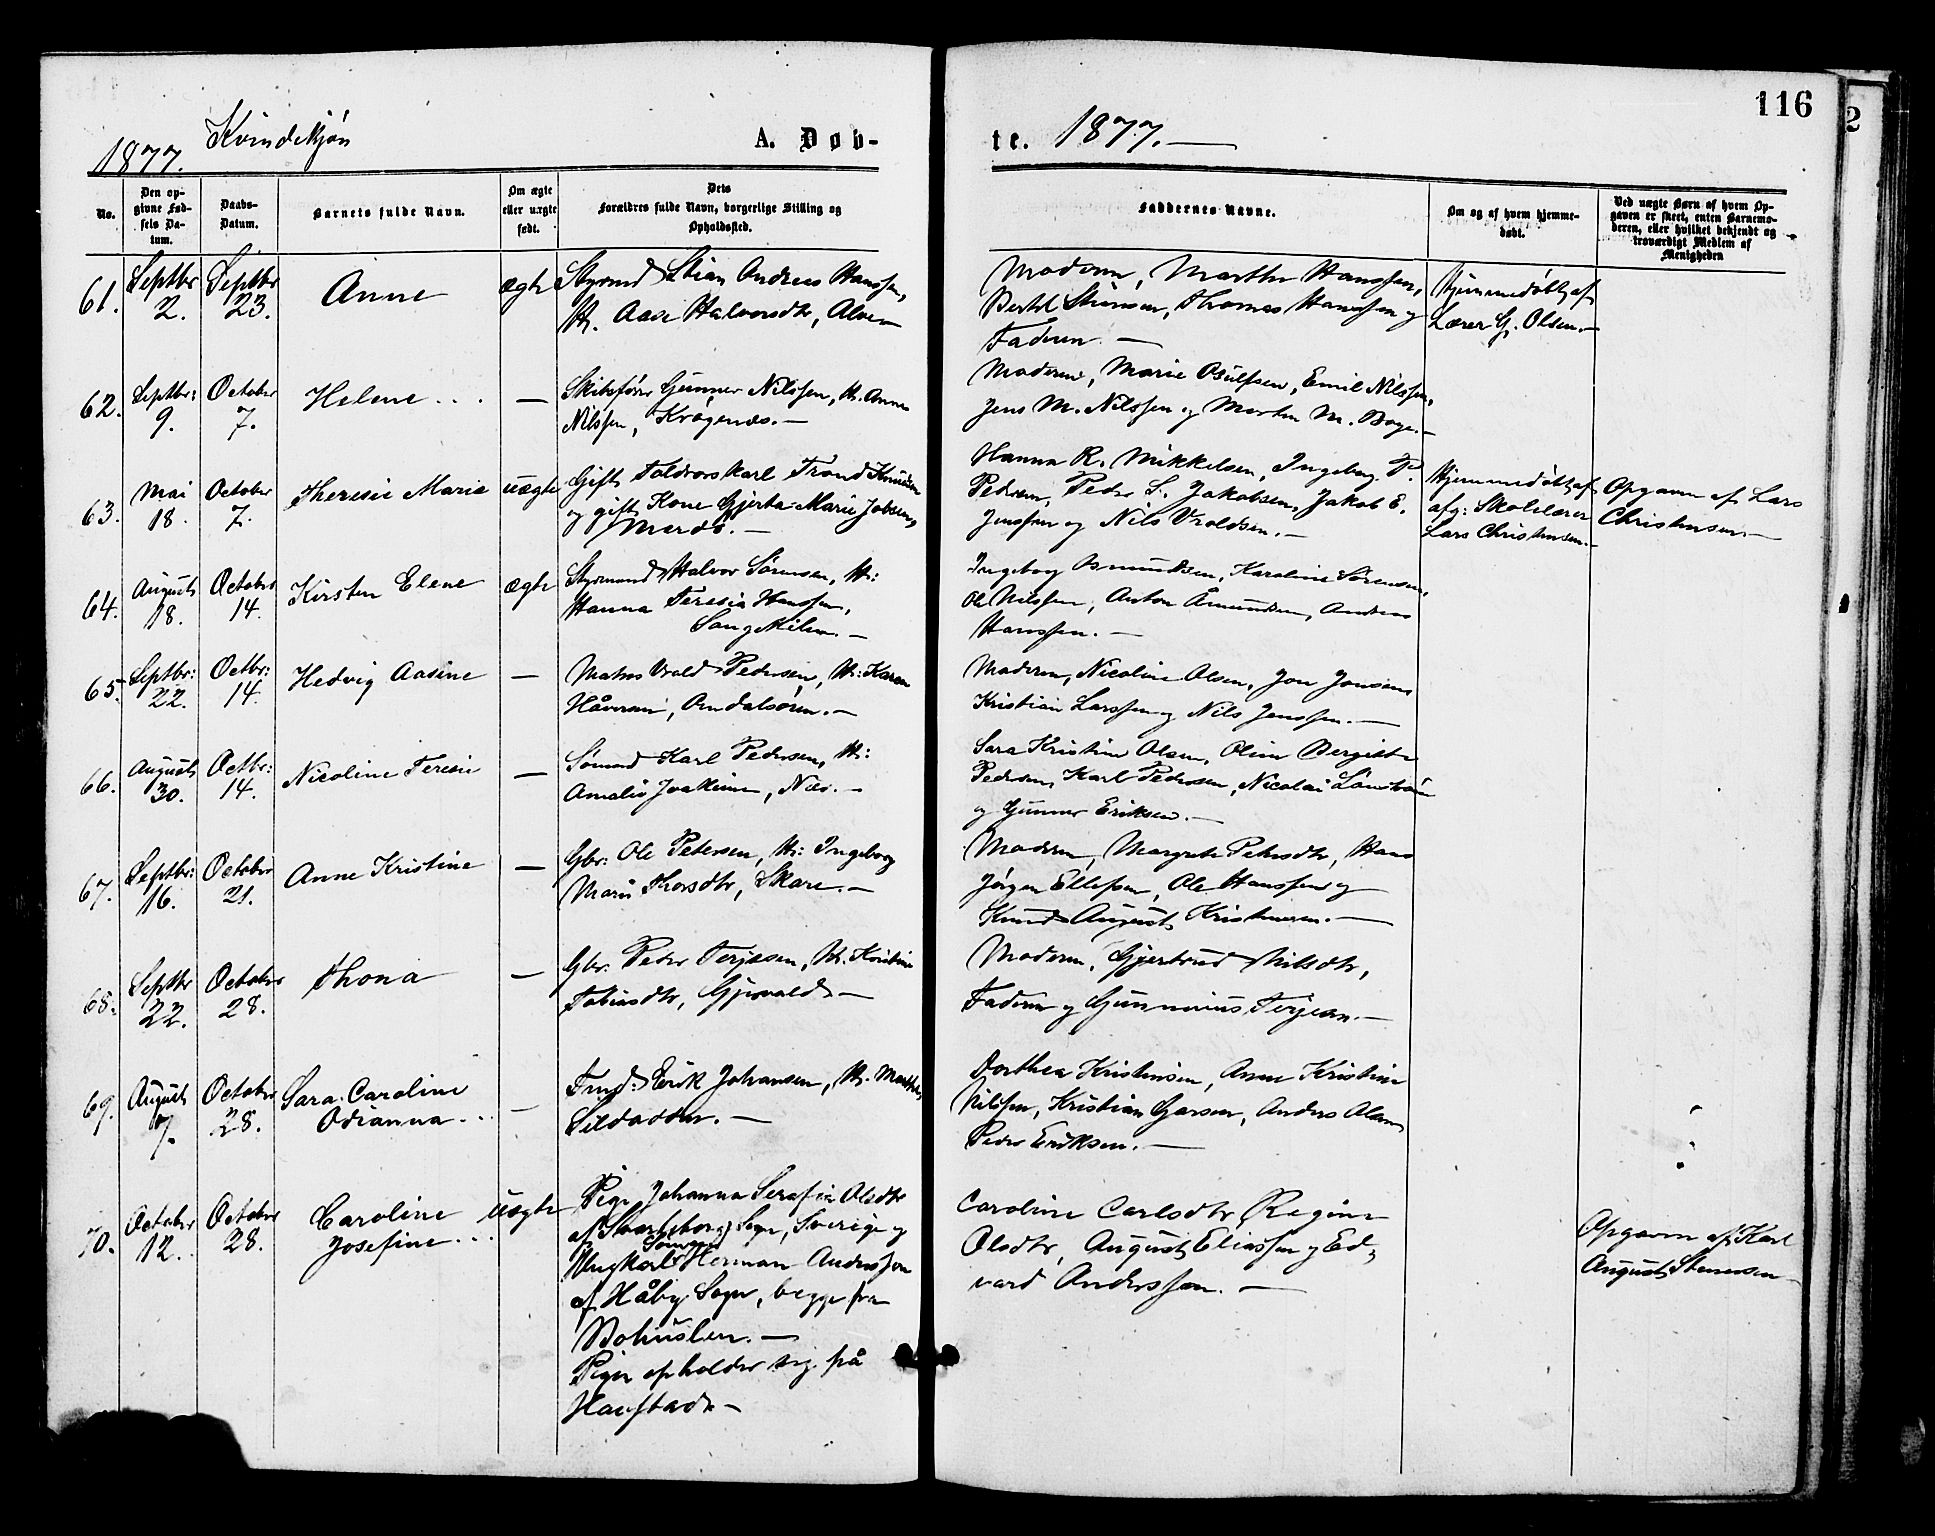 116
2
Kvindekjøn
1877.
A. Døb-
te. 1877.
No.
Den op-
givne Fød-
sels Da-
tum.
Daabs-
Datum.
Barnets fulde Navn.
Om ægte
eller uægte
født.
Dets
Forældres fulde Navn, borgerlige Stilling og
Opholdssted.
Faddernes Navne.
Om og af hvem hjemme-
døbt.
Ved uægte Børn af hvem Op-
gaven er skeet, enten Barnemo-
deren, eller hvilket bekjendt og
troværdigt Medlem af
Menigheden
61. Septbr 2. Septbr 23. Anne ægte
Styrmd Stian Andreas Hanssen,
H. Aase Halvorsdtr, Alve
Moderen, Marthe Hanssen,
Bertel Thomas Hanssen og
Faderen.
Hjemmedøbt af
Lærer G. Olsen.
62. Septbr: 9. October 7. Helene
Skibsfører Gunner Nilssen, H. Anne
Nilssen, Krøgenæs.
Moderen, Marie Osulfsen, Emil Nilssen,
Jens M. Nilssen og Morten M. Boye.
63. Mai 18. October 7. Theresie Marie uægte
Gift Toldvorskarl Trond Knudsen
og gift Kone Gjerta Marie Jobsen,
Merdø.
Hanna R. Mikkelsen, Ingeborg P.
Pedersen, Peder S. Jakobsen, Jakob E.
Jenssen og Nils Vroldsen.
Hjemmedøbt af
afg: Skolelærer
Lars Christensen.
Opgaven af Lars
Christensen.
64. August 18. October 14. Kirsten Elene ægte
Styrmand Halvor Sørensen, H:
Hanna Teresia Hanssen,
Songekilen.
Ingeborg Osmundsen, Karoline Sørensen,
Ole Nilssen, Anton Åmundsen, Anders
Hanssen.
65. Septbr: 22. Octbr: 14. Hedvig Aasine
Matros Vrold Pedersen, H: Karen
Håversen, Arendalsøren.
Moderen, Nicoline Olsen, Jon Jonsen
Kristian Larssen og Nils Jenssen.
66. August 30. Octbr: 14. Nicoline Teresie
Sømand Karl Pedersen, H:
Amalie Joakime, Næs.
Sara Kristine Olsen, Oline Bergitte
Pedersen, Karl Pedersen, Nicolai
og Gunner Eriksen.
67. Septbr: 16. October 21. Anne Kristine
Gbr: Ole Petersen, H: Ingeborg
Marie Thorsdtr, Skare.
Moderen, Margrete Petersdtr, Hans
Jørgen Ellefsen, Ole Hanssen og
Knud August Kristensen.
68. Septbr 22. October 28. Thona
Gbr. Peder Terjesen, H. Kristine
Tobiasdtr, Gjervold
Moderen, Gjertrud Nilsdtr,
Faderen og Gunnerius Terjesen.
69. August 7. October 28. Sara Caroline
Odianna
Erik Johansen, H. Marthe
Sildodden.
Dorthea Kristensen, Anne Kristine
Nilssen, Kristian Garsen, Anders Olsen
Peder Eriksen.
70. October 12. October 28. Caroline uægte
Josefine
Pige Johanna Serafia Olsdtr
af Skarkeborg Sogn, Sverige og
Sømand
Ungkarl Herman Anderssen
af Håby Sogn, begge fra
Bohuslen.
Pigen opholder sig på
Haustad
Caroline Carlsdtr, Regine
Olsdtr, August Eliassen og Ed-
vard Anderssen.
Opgaven af Karl
August Stenersen